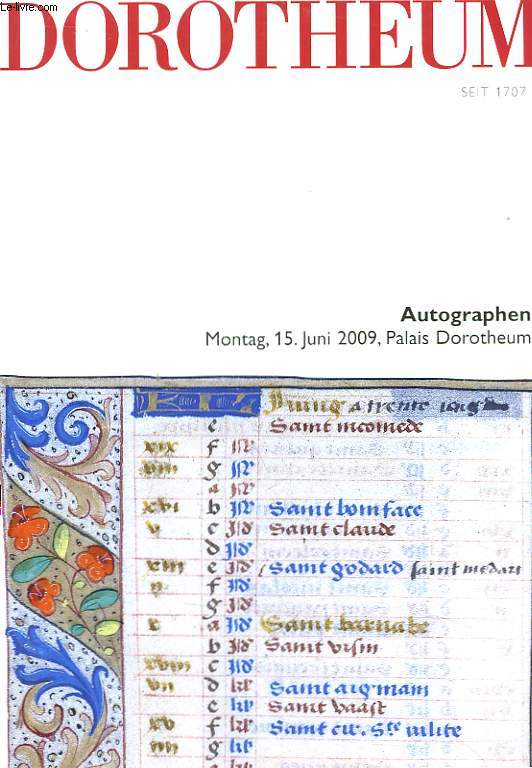 Le-livre.com
DOROTHEUM
SEIT 1707
Autographen
Montag, 15. Juni 2009, Palais Dorotheum
KL Juing a trente iours
e Saint nicomede
xix f
viii g
a
xvi b Saint boniface
v c Saint claude
d
xiii e Saint godard saint medart
ii f
g
x a Saint barnabe
b Saint
xviii c
vii d Saint
e Saint vaast
xv f Saint
iiii g